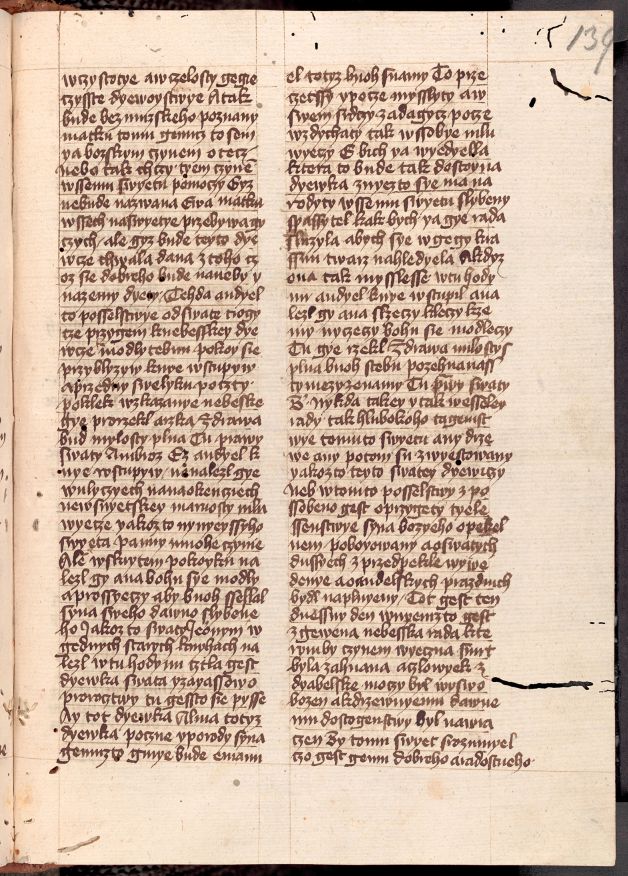 139
wczystotye a w czelosty gegie
czyste dyewoystwye A tak
bude bez muzskeho poznany
matku tomu gemuz to sem
ya bozskym czynem otecz
nebo tak chczy tyem czynē
wssemu swyetu pomoczy Gyz
nebude nazwana Ewa matku
wssech naswyetye przebywagy
czych ale gyz bude teyto dye
wcze chwala dana z toho cz
oz sie dobreho bude naneby y
nazemy dyety Tehda andyel
to posselstwye od swate trogy
cze przygem knebesskey dye
wcze modlytebnu pokoy sie
przyblyzyw knye wstupyw
a przediw swelyku poczty
poklek wzkazanye nebeske
gye prorzekl a rzka Zdrawa
bud mylosty plna Tu prawy
swaty Ambroz Ez andyel k
nye wstupyw nenalezl gye
wulyczyech nanaokenciech
newswyetskey marnosty milu
wyecze yakozto nynyeyssyho
swyeta panny mnohe czynye
Ale wskrytem pokoyku na
lezl gy ana bohu sye modly
a prossyeczy aby buoh seslal
syna sweho dawno slybene
ho Jakozto swaty Jeronym w
gednych starych knyhach na
lezl w tu hodynu cztla gest
dyewka swata yzayassowo
proroctwy tu gessto sie pysse
Ay tot dyewka Alma totyz
dyewka poczne y porody syna
gemuzto gmye bude emanu
el totyz buoh snamy To prze
czetssy y pecze myslyty a w
swem srdczy zadagycz pocze
wzdychaty tak w ssobye mlu
wyeczy E bich ya wyedyella
ktera to bude tak dostoyna
dyewka znyezto sye ma na
rodyty wssemu swyetu slybeny
spassytel kak bych ya gye rada
sluzyla abych sye w gegy kra
ssnu twarz nahledyela A kdyz
ona tak myslesse w tu hody
nu andyel knye wstupil ana
lezl gy ana slzeczy kleczy kze
my nyczeczy bohu sie modleczy
Tu gye rzekl Zdrawa milostys
plna buoh stebu pozehnanass
ty mezy zenamy Tu prwy swaty
B nykda takey y tak wesseley
rady tak hlubokeho tagemst
wye tomuto swyetu any drze
we any potom su zwyestowany
yakozto teyto swatey dyewiczy
neb w tomto posselstwy z po
ssobeno gest o przygety tyele
ssenstwye syna bozyeho o pekel
nem poborowany a o swatych
dussyech z przedpekle wywe
denye a o andelskych prazdnich
bydl naplnyeny Tot gest ten
dnessny den w nyemzto gest
z gewena nebesska rada kte
remuby czynem wyeczna smrt
byla zahnana a czlowyek z
dyabelske moczy byl wyswo
bozen a k drzewnyemu dawne
mu dostogenstwy byl nawra
czen By tomu swyet srozumyel
czo gest gemu dobreho a radostneho